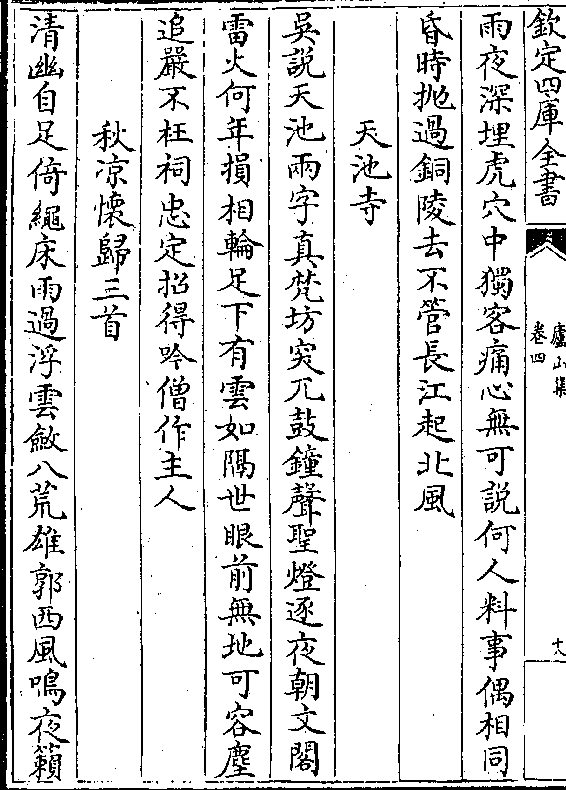 欽定四庫全書
廬山集
卷四
十八
雨夜深埋虎穴中獨客痛心無可説何人料事偶相同
昏時抛過銅陵去不管長江起北風
天池寺
吳説天池兩字真梵坊突兀鼓鐘聲聖燈逐夜朝文閣
雷火何年損相輪足下有雲如隔世眼前無地可容塵
追嚴不枉祠忠定招得吟僧作主人
秋凉懷歸三首
清幽自足倚繩床雨過浮雲斂八荒雄郭西風鳴夜籟